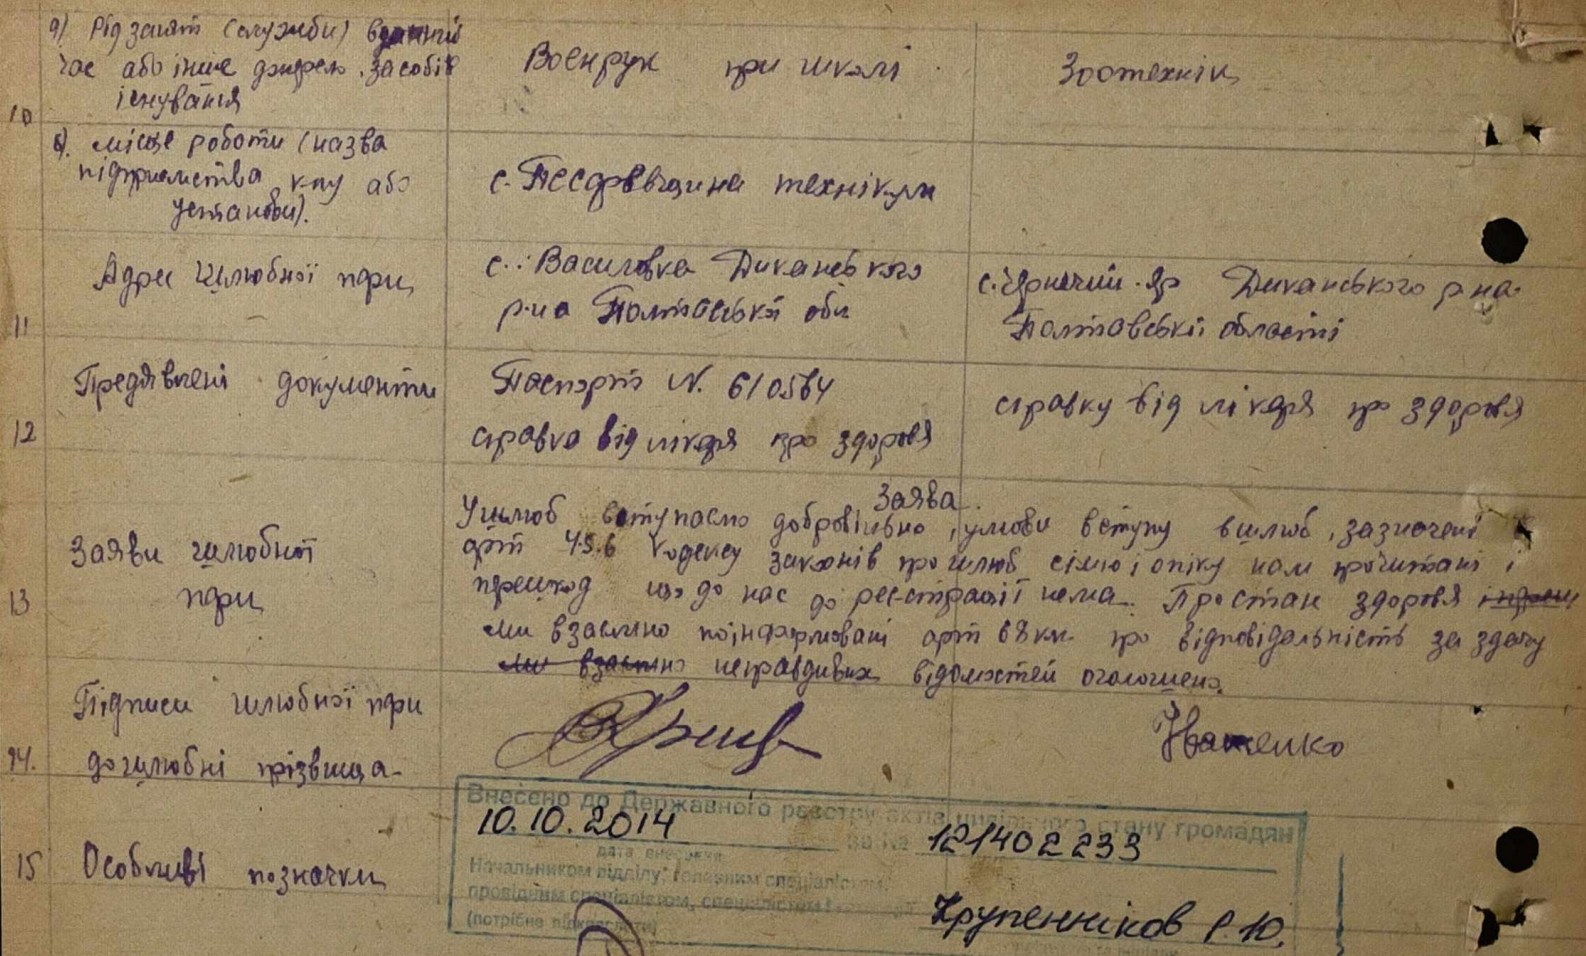 а) Рід занят (служби) в даний
час або інше джерело засобів
існування
Воєнрук при школі
Зоотехнік
10
б). місце роботи (назва
підприємства, к-пу або
установи).
технікум
11
Адрес шлюбної пари
с. Василівка Диканського
р-на Полтавської обл
с. Чернечий-Яр Диканського р-на
Полтавської області
12
Предявлені документи
Паспорт N. 610564
справка від лікаря про здоровя
справку від лікаря про здоровя
13
Заяви шлюбної
пари
Заява
У шлюб вступаємо добровільно, умови вступу в шлюб, зазначені
арт 4.5.6 Кодексу законів про шлюб сімю і опіку нам прочитані і
перешкод що до нас до реєстрації нема. Про стан здоровя
ми взаємно поінформовані арт 68 км про відповідальність за здачу
ми взаємно неправдивих відомостей оголошено.
14.
Підписи шлюбної пари
дошлюбні прізвища
Іваненко
15
Особливі позначки
Внесено до Державного реєстру актів цивільного стану громадян
10.10.2014
за №
121402233
дата внесення
Начальником відділу, головним спеціалістом,
провідним спеціалістом, спеціалістом I категорії
(потрібне підкреслити)
Крупенніков Р.Ю.